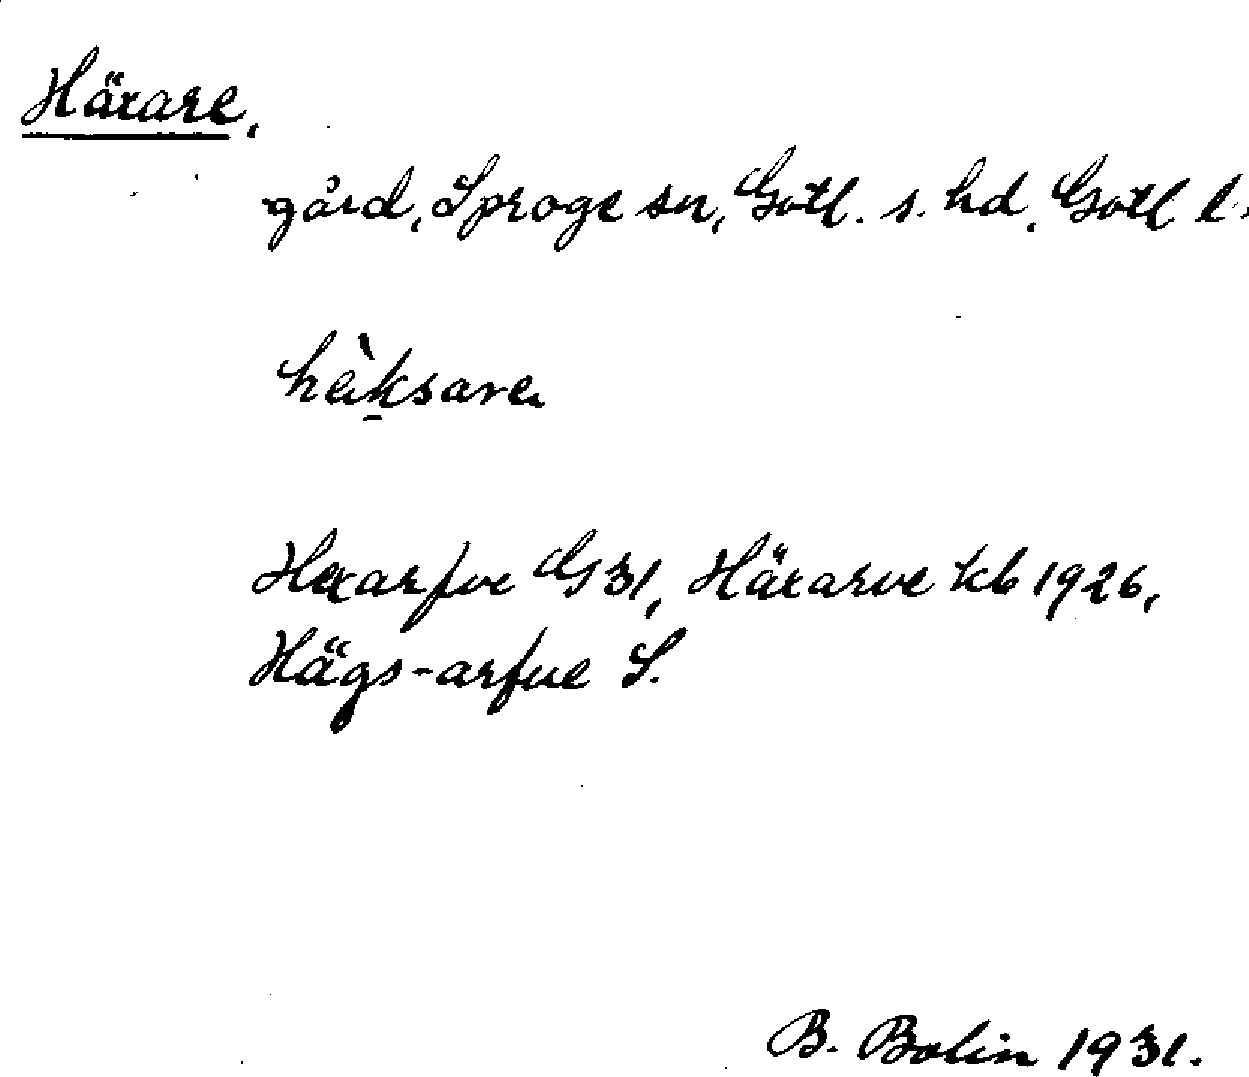 Häxare,
gård, Sproge sn, Gotl. s. hd, Gotl l.
hèksare
Hexarfve G 31, Häxarve kb 1926,
Hägs-arfue S.
B. Bolin 1931.